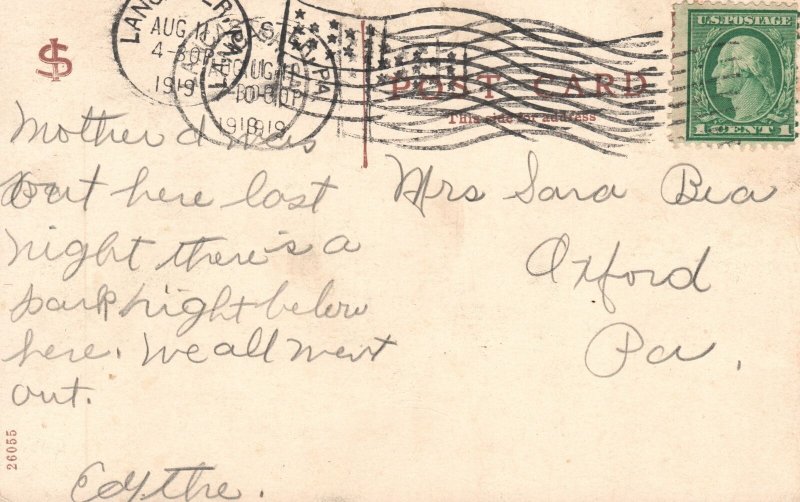 LANCASTER, PA.
AUG 11
4-30P
1919
POST CARD
This side for address
U.S. POSTAGE
1 CENT 1
Mother
out here last
night there's a
park right below
here. We all went
out.
Edythe.
Mrs Sara Bea
Oxford
Pa.
26055